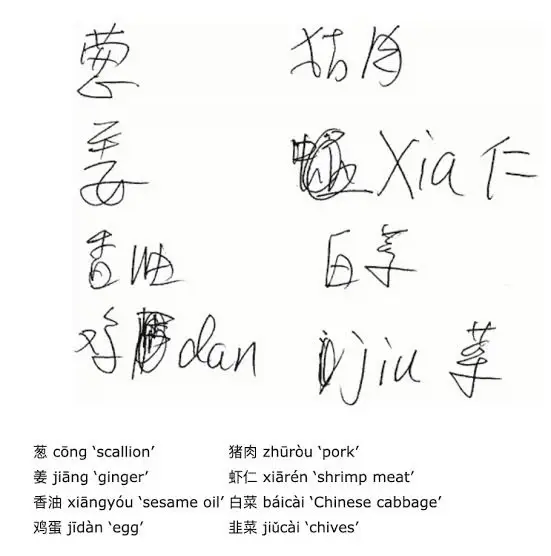 葱 猪肉
姜 Xia仁
香油 白菜
鸡dan jiu菜
葱 cōng ‘scallion’ 猪肉 zhūròu ‘pork’
姜 jiāng ‘ginger’ 虾仁 xiārén ‘shrimp meat’
香油 xiāngyóu ‘sesame oil’ 白菜 báicài ‘Chinese cabbage’
鸡蛋 jīdàn ‘egg’ 韭菜 jiǔcài ‘chives’